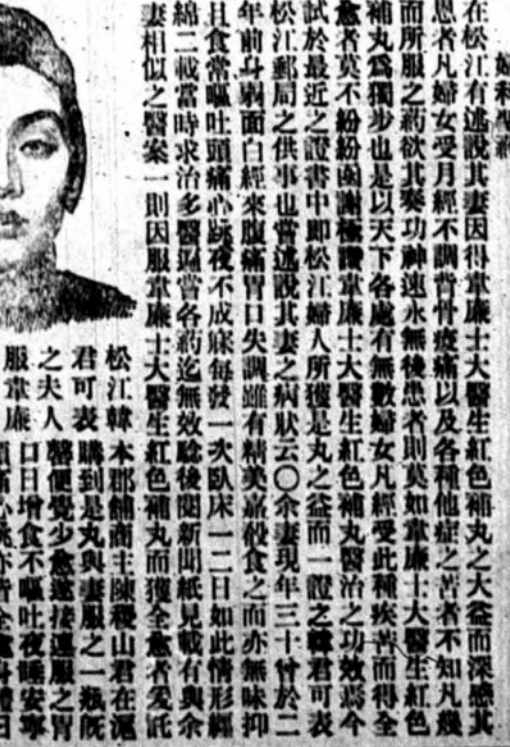 婦科
在松江有述說其妻因得韋廉士大醫生紅色補丸之大益而深感其
恩者凡婦女受月經不調背骨痠痛以及各種他症之苦者不知凡幾
而所服之药欲其奏功神速永無後患者則莫如韋廉士大醫生紅色
補丸爲獨步也是以天下各處有無數婦女凡經受此種疾苦而得全
愈者莫不紛紛函謝極讚韋廉士大醫生紅色補丸醫治之功效焉今
試於最近之證書中即松江婦人所獲是丸之益而一證之韓君可表
松江郵局之供事也嘗述說其妻之病狀云〇余妻現年三十曾於二
年前身弱面白經來腹痛胃口失調雖有精美嘉殽食之而亦無味抑
且食常嘔吐頭痛心跳夜不成寐每發一次臥床一二日如此情形經
綿二載當時求治多醫遍嘗各药迄無效騐後閱新聞紙見載有與余
妻相似之醫案一則因服韋廉士大醫生紅色補丸而獲全愈者爰託
松江韓
君可表
之夫人
服韋廉
本郡舖商主陳稷山君在滬
購到是丸與妻服之一瓶既
罄便覺少愈遂接連服之胃
口日增食不嘔吐夜睡安寧
頭痛心跳亦皆全愈身體日